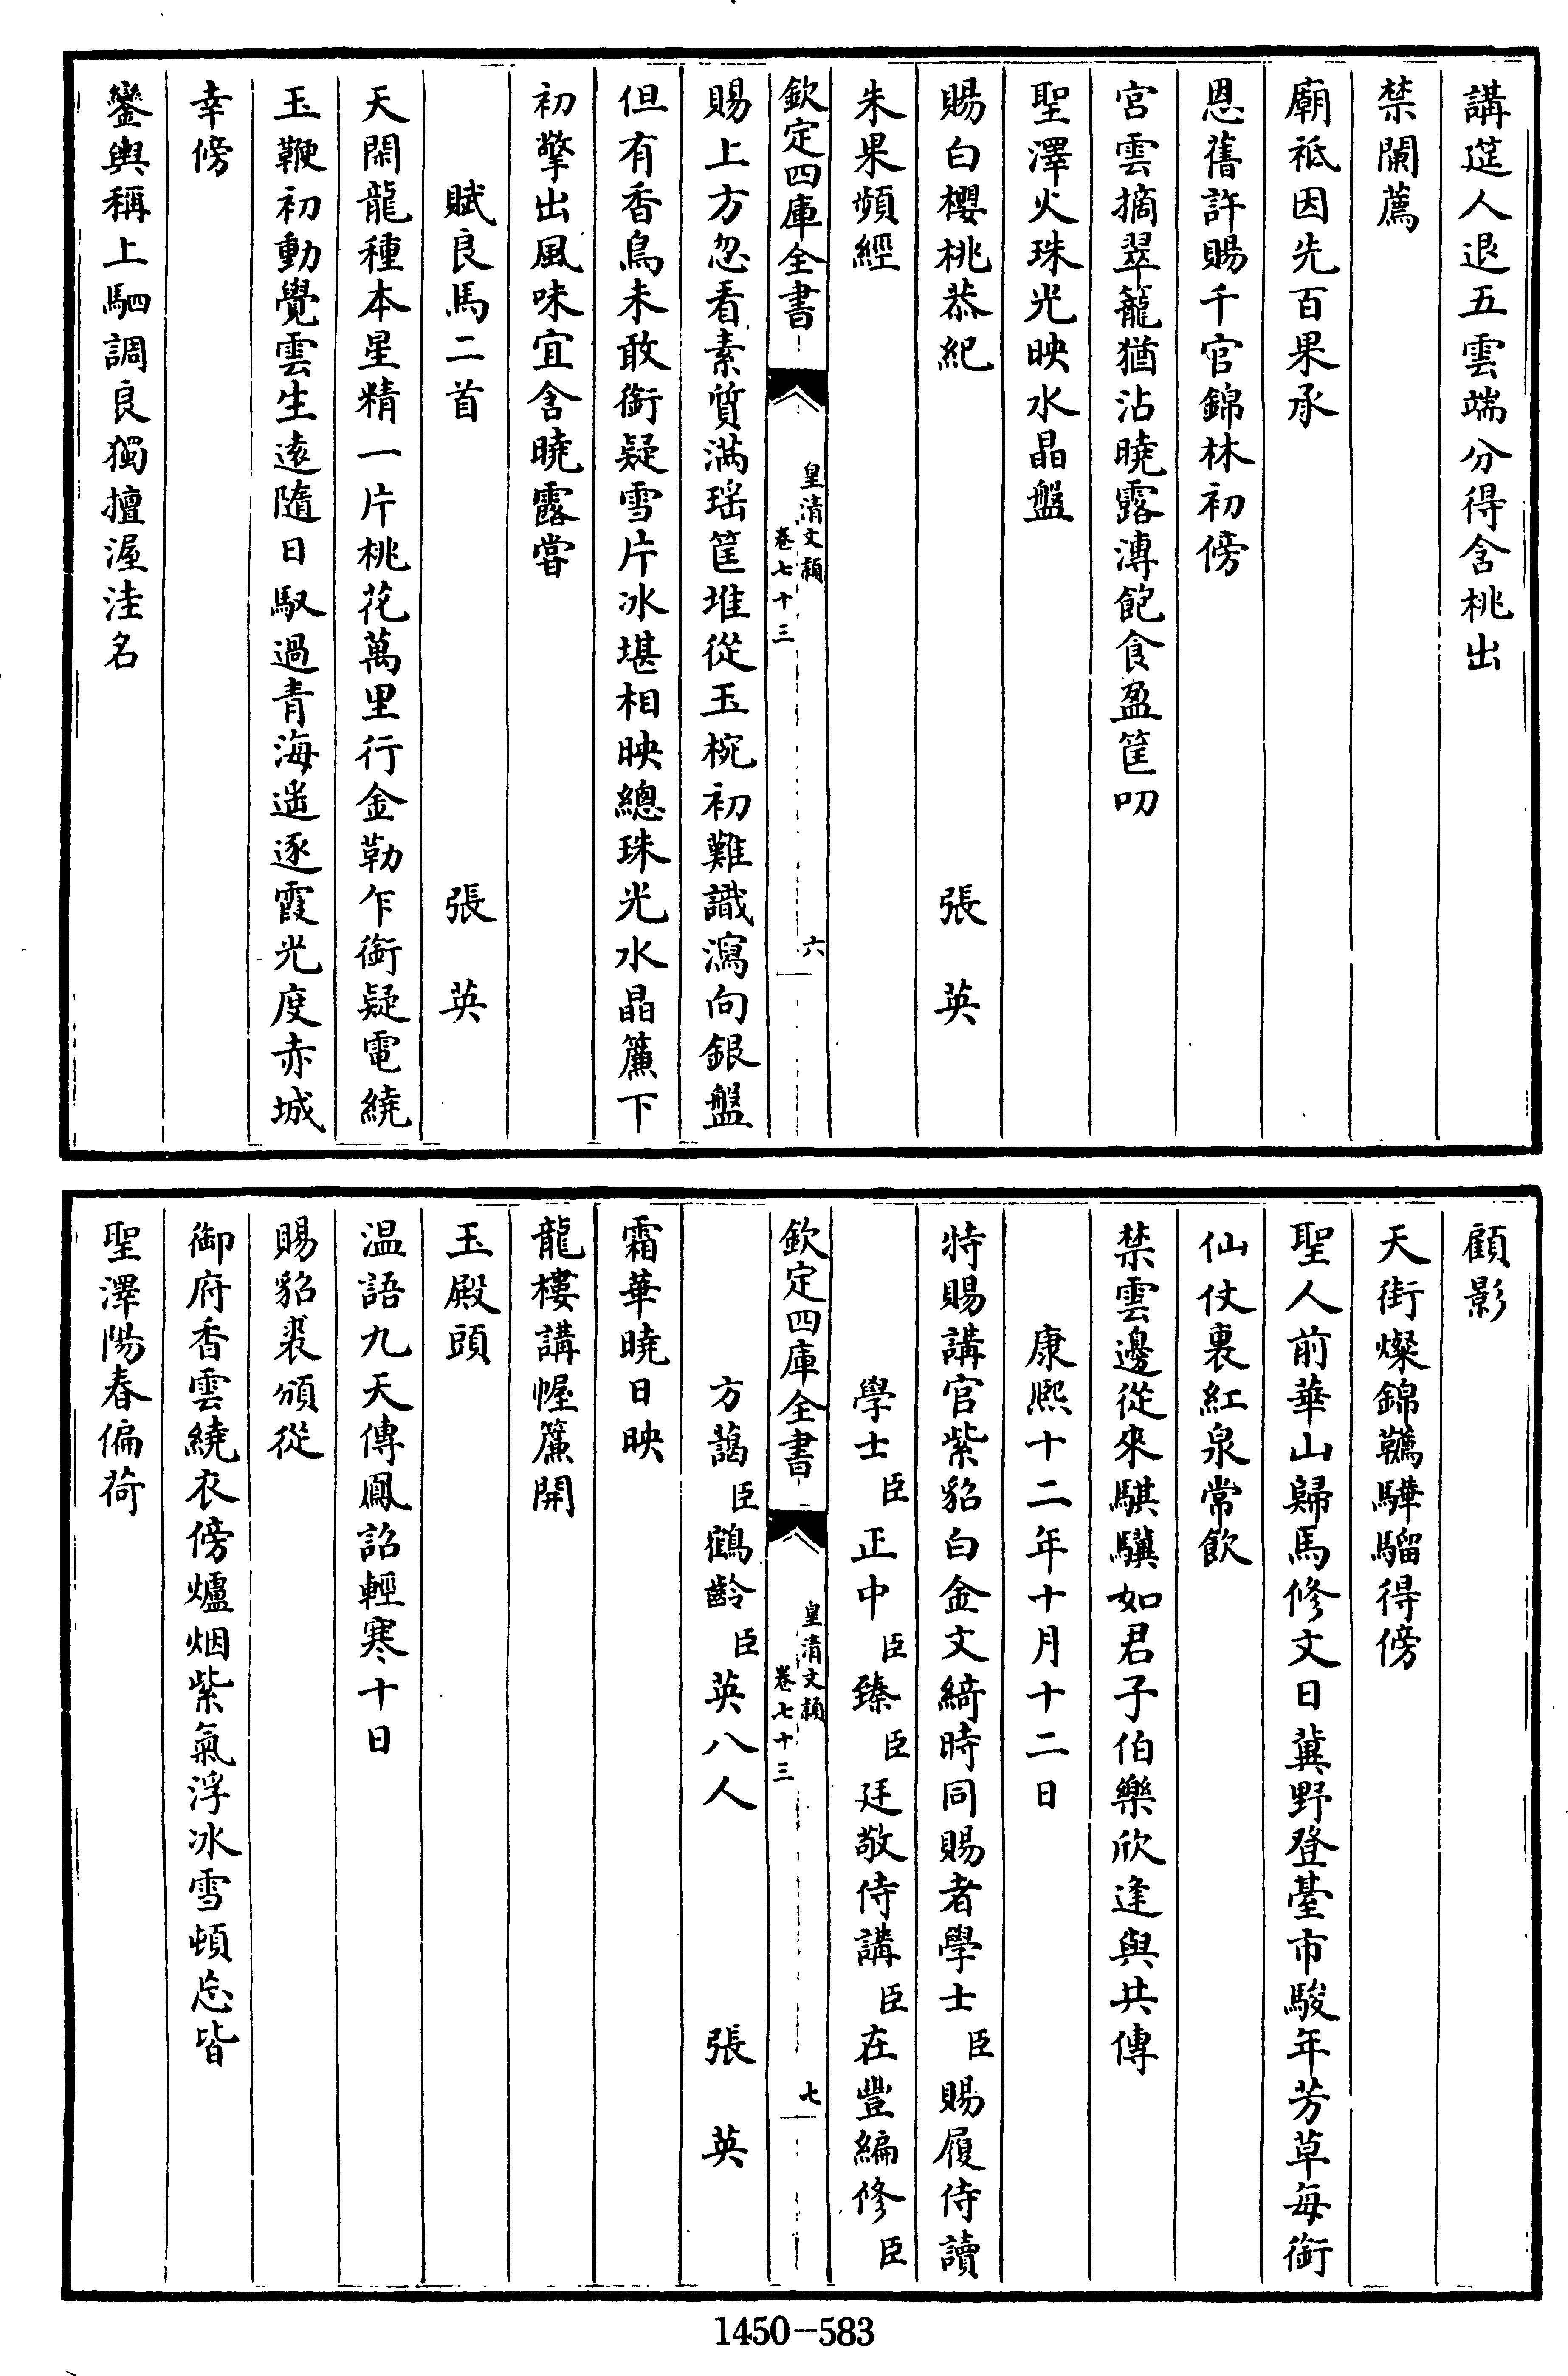 講筵人退五雲端分得含桃出
禁闌薦
廟祗因先百果承
恩舊許賜千官錦林初傍
宮雲摘翠籠猶沾曉露漙飽食盈筐叨
聖澤火珠光映水晶盤
賜白櫻桃恭紀　張英
朱果頻經
欽定四庫全書　皇清文穎　卷七十三　六
賜上方忽看素質滿瑶筐堆從玉椀初難識瀉向銀盤
但有香鳥未敢銜疑雪片冰堪相映總珠光水晶簾下
初擎出風味宜含曉露嘗
賦良馬二首　張英
天閑龍種本星精一片桃花萬里行金勒乍銜疑電繞
玉鞭初動覺雲生遠隨日馭過青海遥逐霞光度赤城
幸傍
鑾輿稱上駟調良獨擅渥洼名
顧影
天街燦錦韉驊騮得傍
聖人前華山歸馬修文日冀野登臺市駿年芳草每銜
仙仗裏紅泉常飲
禁雲邊從來騏驥如君子伯樂欣逢與共傳
康熙十二年十月十二日
特賜講官紫貂白金文綺時同賜者學士臣賜履侍讀
學士臣正中臣臻臣廷敬侍講臣在豐編修臣
欽定四庫全書　皇清文穎　卷七十三　七
方藹臣鶴齡臣英八人　張英
霜華曉日映
龍樓講幄簾開
玉殿頭
温語九天傳鳳詔輕寒十日
賜貂裘頒從
御府香雲繞衣傍爐烟紫氣浮冰雪頓忘皆
聖澤陽春偏荷
1450-583